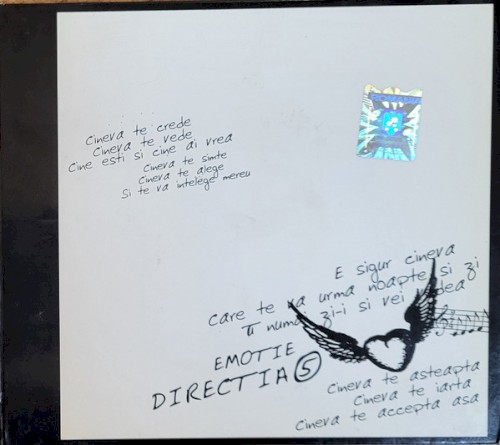 Cineva te crede
Cineva te vede
Cine esti si cine ai vrea
Cineva te simte
Cineva te alege
Si te va intelege mereu
E sigur cineva
care te va urma noapte si zi
Tu numa zi-i si vei vedea
EMOTIE
DIRECTIA 5
Cineva te asteapta
Cineva te iarta
Cineva te accepta asa